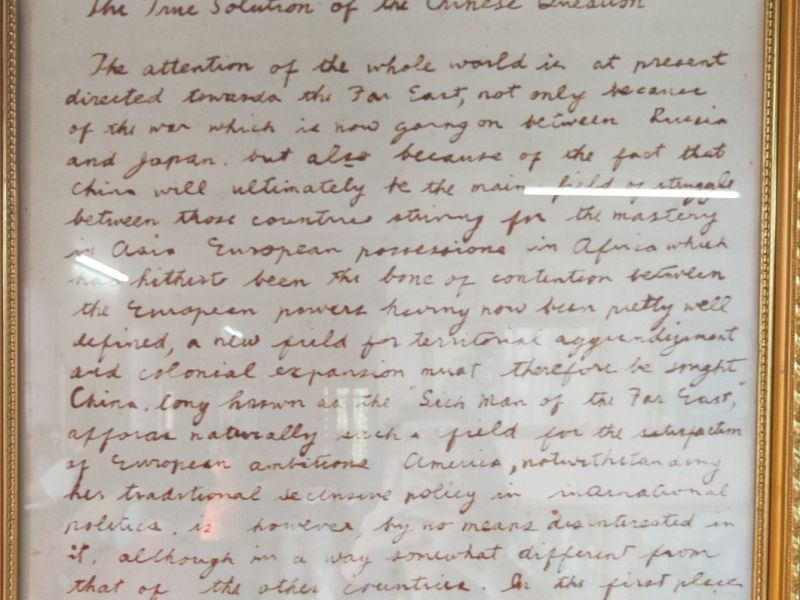 The True Solution of the Chinese Question
The attention of the whole world is at present
directed towards the Far East, not only because
of the war which is now going on between Russia
and Japan. but also because of the fact that
China will ultimately be the main field of struggle
between those countries striving for the mastery
in Asia European possessions in Africa which
has hitherto been the bone of contention between
the European powers having now been pretty well
defined, a new field for territorial aggrandizement
and colonial expansion must therefore be sought
China, long known as the "Sick Man of the Far East,"
affords naturally such a field for the satisfaction
of European ambitions America, notwithstanding
her traditional seclusive policy in international
politics, is however, by no means disinterested in
it, although in a way somewhat different from
that of the other countries. In the first place